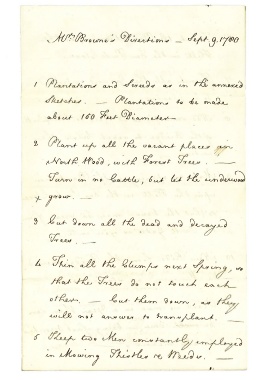 Mr. Browne's Directions — Sept. 9. 1780
1 Plantations and Sheeds as in the annexed
Sketches. — Plantations to be made
about 160 Feet Diameter —
2 Plant up all the vacant places in
North Wood, with Forest Trees. —
Turn in no Cattle, but let the underwood
x grow. —
3 Cut down all the dead and decayed
Trees. —
4 Thin all the Clumps next Spring, so
that the Trees do not touch each
others. — Cut them down, as they
will not answer to transplant. —
5 Keep two Men constantly employed
in Mowing Thistles & Weeds. —